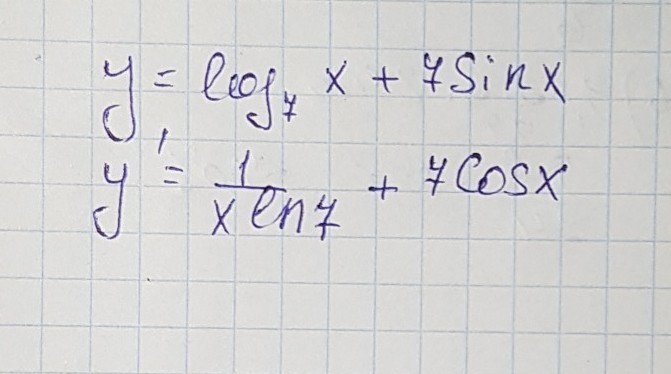 y = log₇ x + 7sinx
y' = 1/(x ln7) + 7cosx